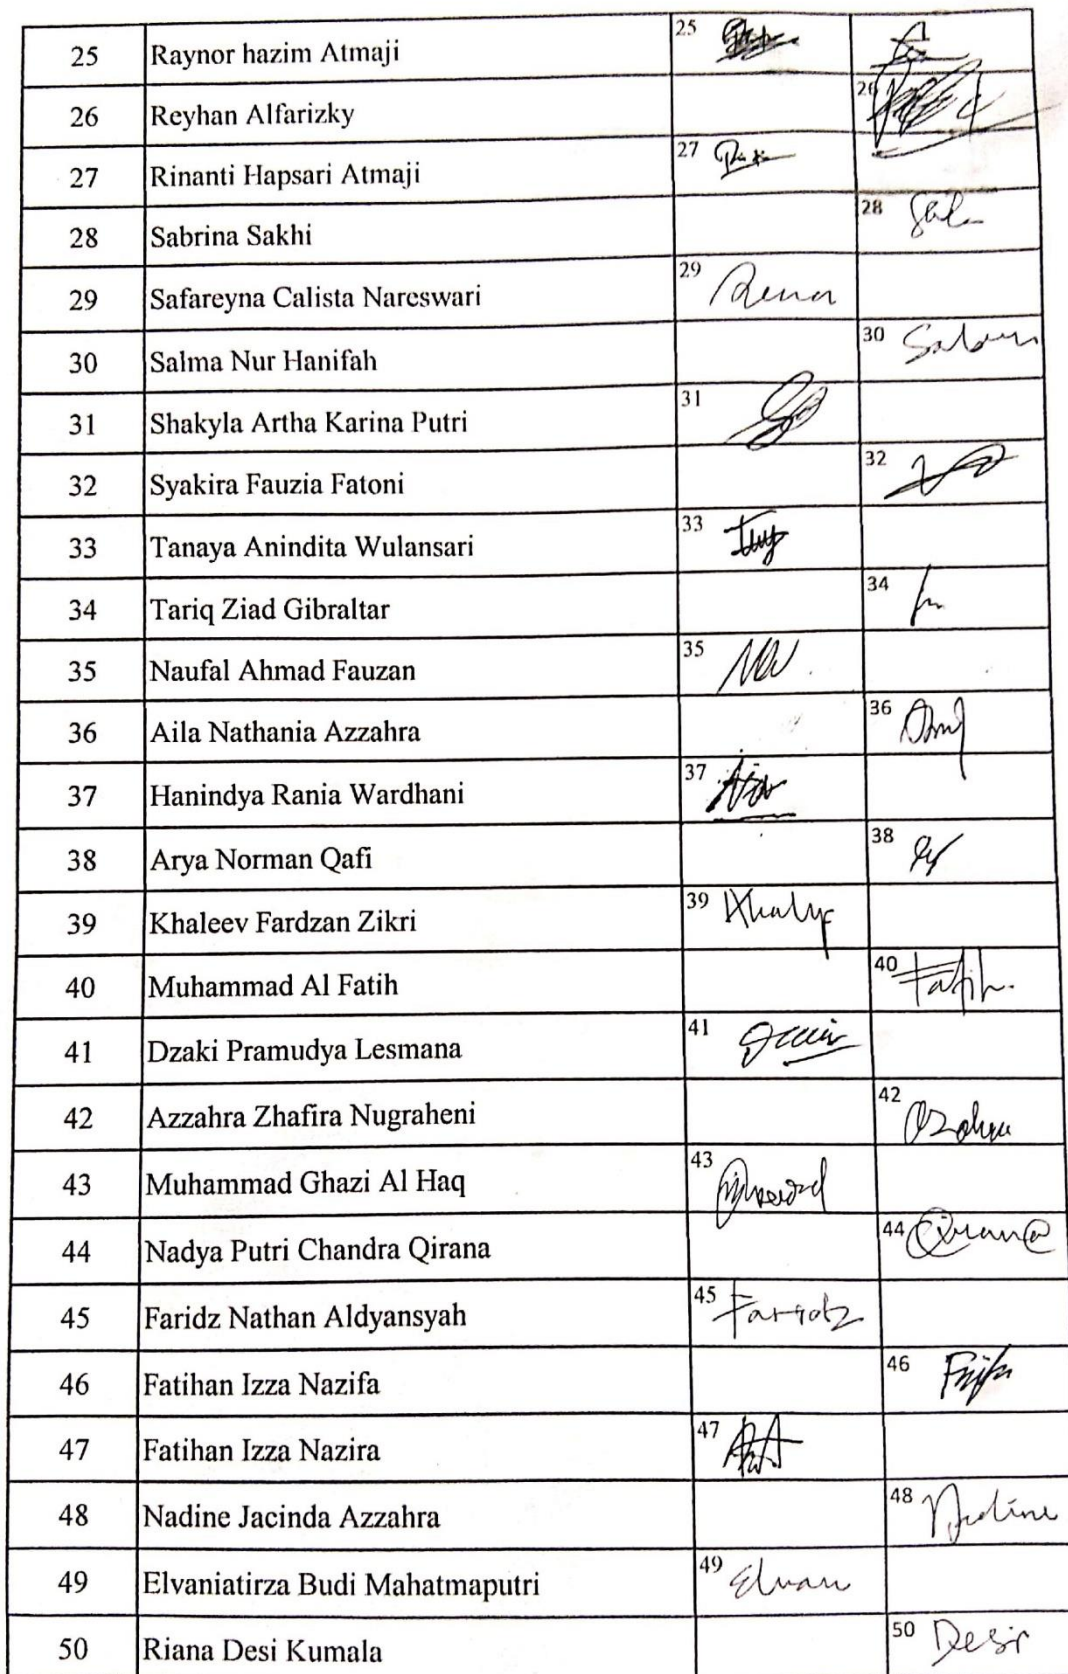 25 Raynor hazim Atmaji 25
26 Reyhan Alfarizky 26
27 Rinanti Hapsari Atmaji 27
28 Sabrina Sakhi 28
29 Safareyna Calista Nareswari 29
30 Salma Nur Hanifah 30
31 Shakyla Artha Karina Putri 31
32 Syakira Fauzia Fatoni 32
33 Tanaya Anindita Wulansari 33
34 Tariq Ziad Gibraltar 34
35 Naufal Ahmad Fauzan 35
36 Aila Nathania Azzahra 36
37 Hanindya Rania Wardhani 37
38 Arya Norman Qafi 38
39 Khaleev Fardzan Zikri 39
40 Muhammad Al Fatih 40 Fatih.
41 Dzaki Pramudya Lesmana 41
42 Azzahra Zhafira Nugraheni 42
43 Muhammad Ghazi Al Haq 43
44 Nadya Putri Chandra Qirana 44
45 Faridz Nathan Aldyansyah 45
46 Fatihan Izza Nazifa 46
47 Fatihan Izza Nazira 47
48 Nadine Jacinda Azzahra 48 Nadine
49 Elvaniatirza Budi Mahatmaputri 49
50 Riana Desi Kumala 50 Desi